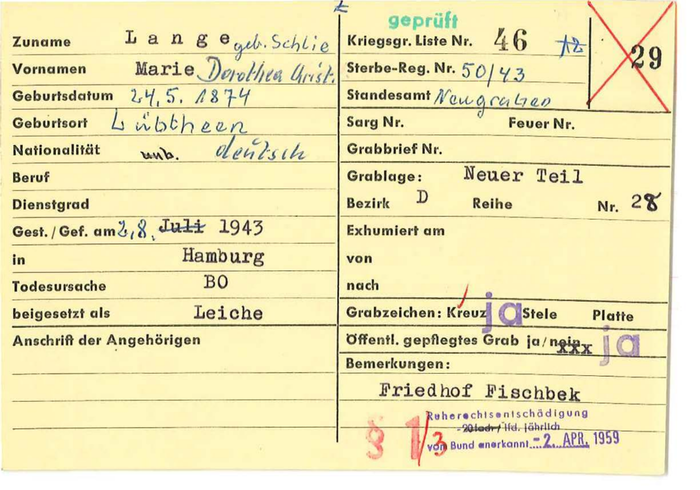 geprüft
Zuname Lange geb. Schlie
Vornamen Marie Dorothea Christ.
Geburtsdatum 24.5. 1874
Geburtsort Lübtheen
Nationalität unb. deutsch
Beruf
Dienstgrad
Gest./Gef. am 2,8. Juli 1943
in Hamburg
Todesursache BO
beigesetzt als Leiche
Anschrift der Angehörigen
Kriegsgr. Liste Nr. 46
29
Sterbe-Reg. Nr. 50/43
Standesamt Neugraben
Sarg Nr. Feuer Nr.
Grabbrief Nr.
Grablage: Neuer Teil
Bezirk D Reihe Nr. 28
Exhumiert am
von
nach
Grabzeichen: Kreuz ja Stele Platte
Öffentl. gepflegtes Grab ja/nein xxx ja
Bemerkungen:
Friedhof Fischbek
Ruherechtsentschädigung
lfd. jährlich
von Bund anerkannt -2. APR. 1959
§ 1/3